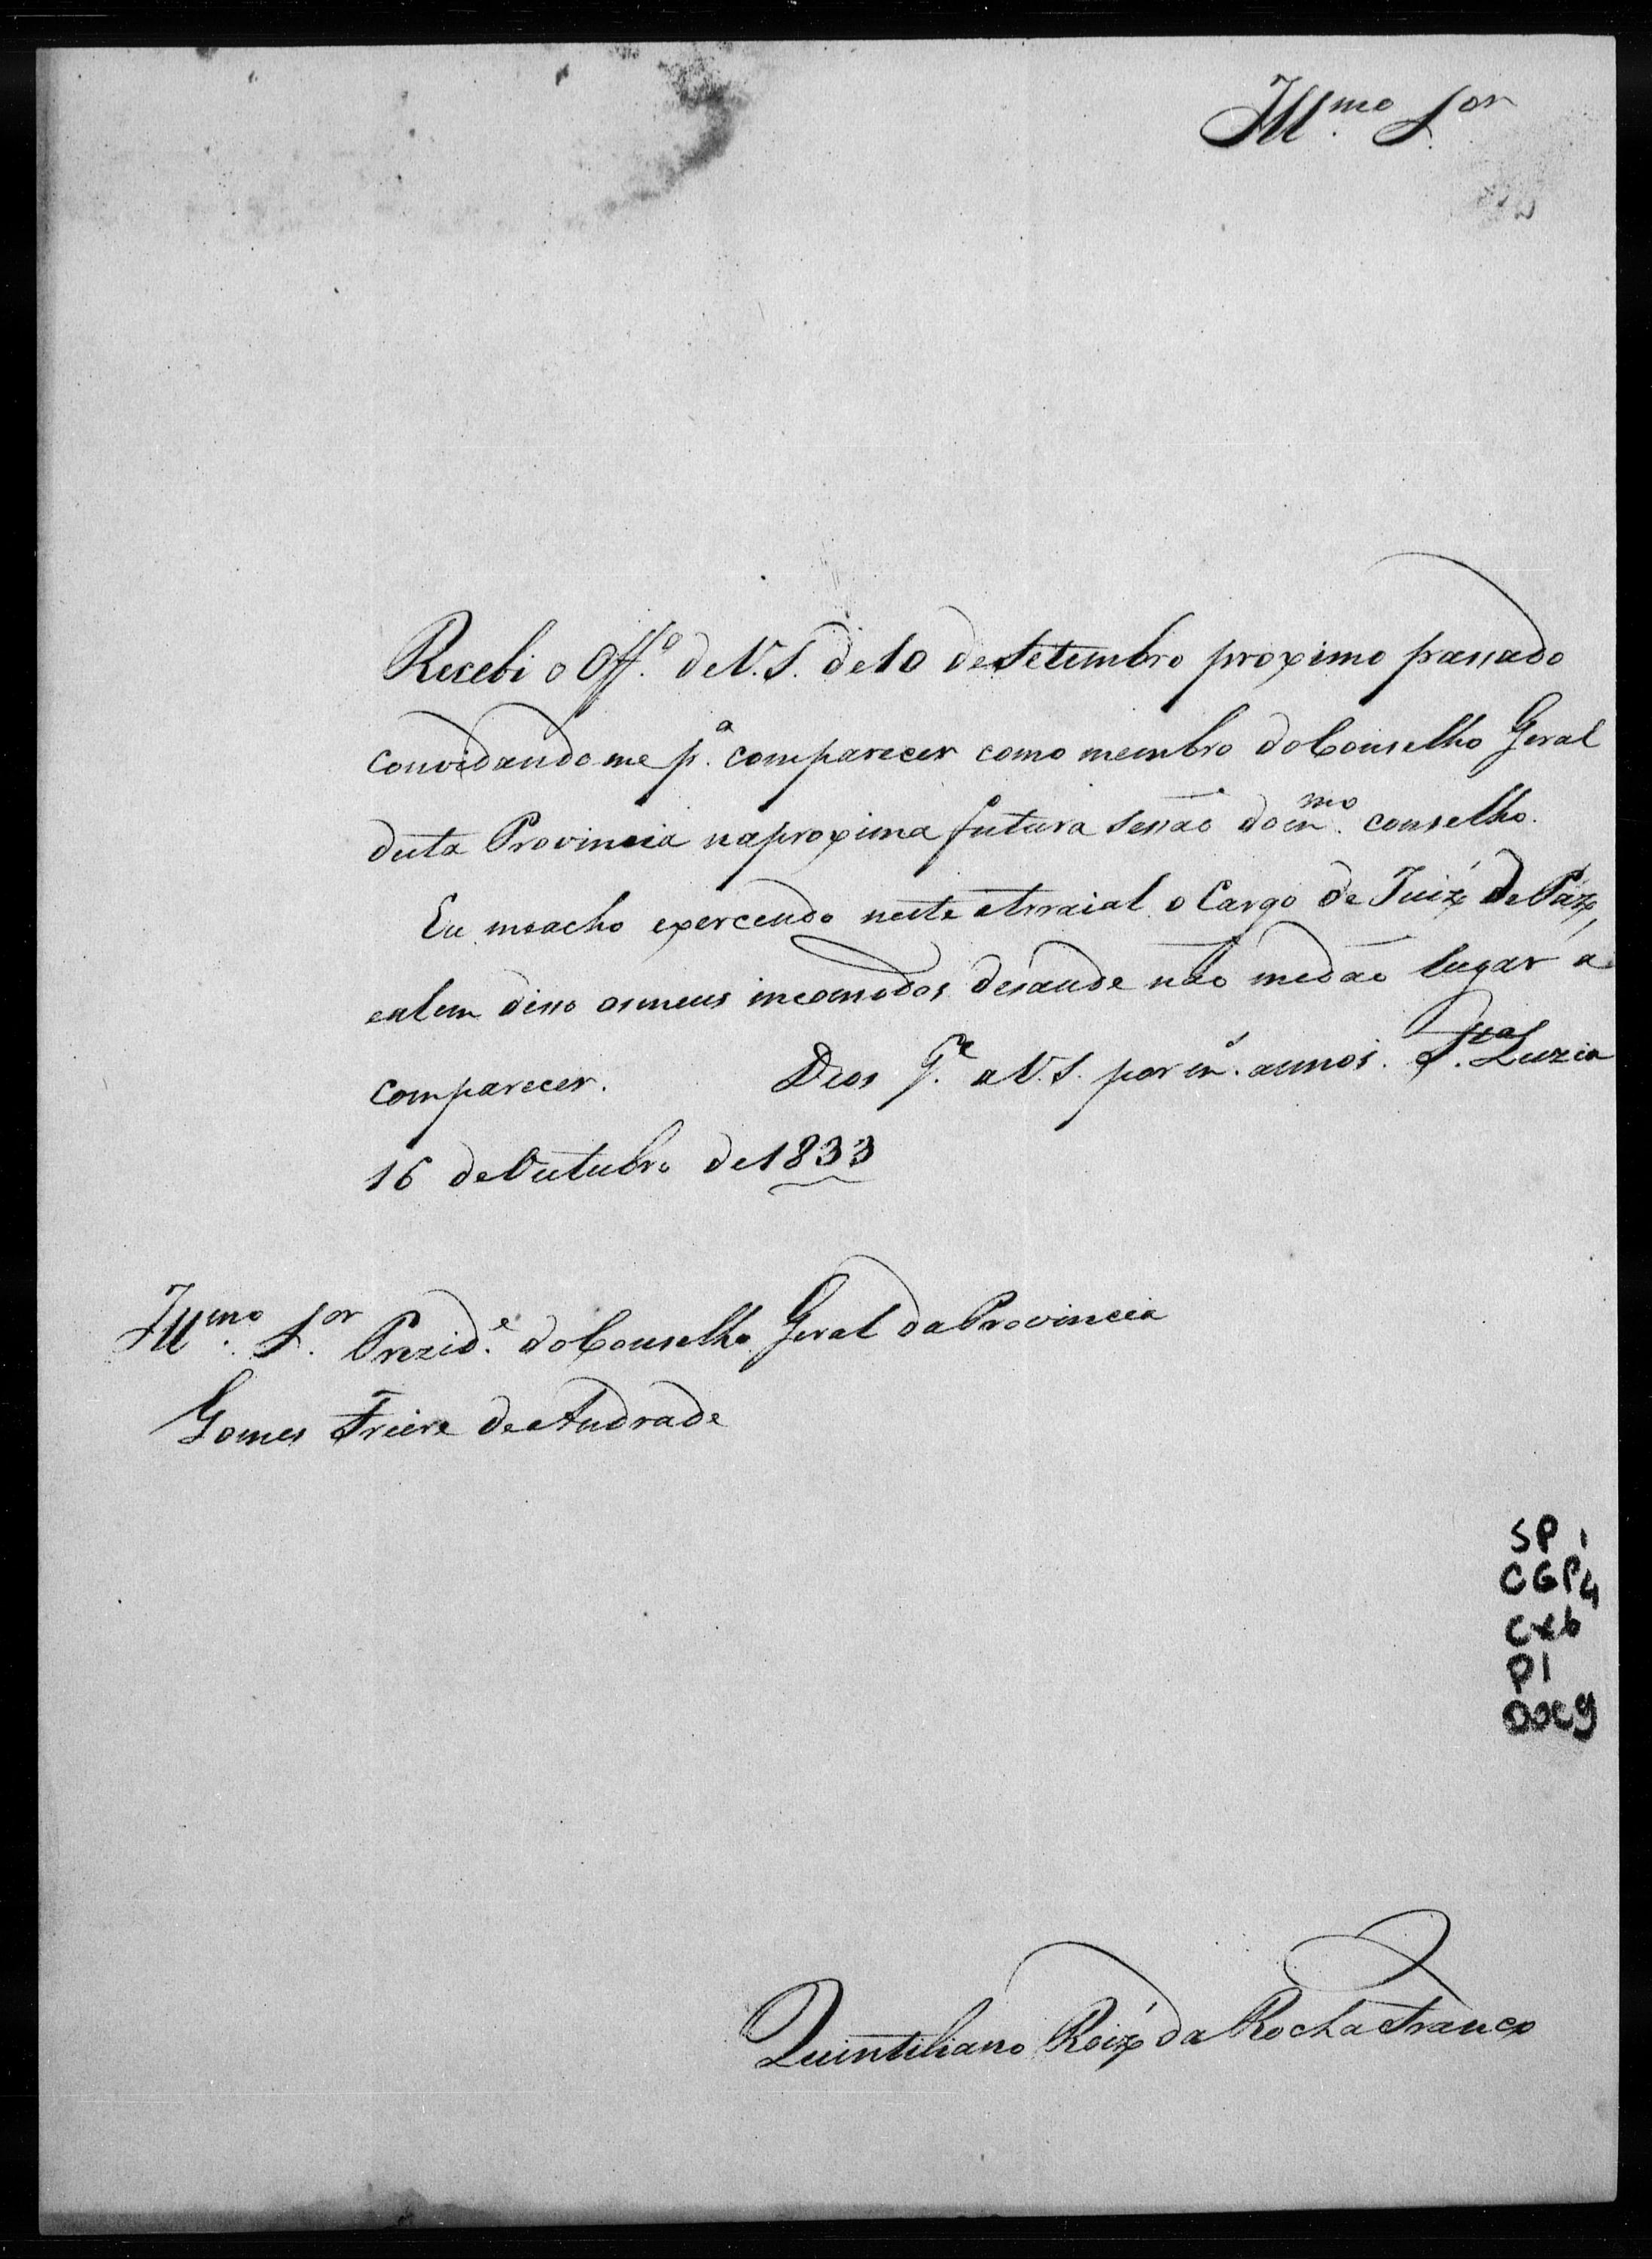 Illmo. Sor.
Recebi o Off.º de V.S. de 10 de Setembro proximo passado
convidandome p.ª comparecer como membro do Conselho Geral
desta Provincia na proxima futura sessão do m.mo conselho.
Eu me acho exercendo neste Arraial o Cargo de Juiz de Paz,
e alem disso os meus incomodos de saude não me dão lugar á
comparecer. Deos G.e a V.S. por m.s annos. S.ta Luzia
16 de Outubro de 1833
Illmo. Sor. Prezid.e do Conselho Geral da Provincia
Gomes Freire de Andrade
SP 1
CGP4
Cx6
P1
DOC9
Quintiliano Roiz da Rocha Franco